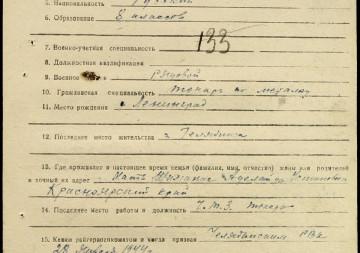 5. Национальность Русский
6. Образование 8 классов
7. Военно-учетная специальность 133
8. Должностная квалификация
9. Военное Рядовой
10. Гражданская специальность токарь по металлу
11. Место рождения г. Ленинград
12. Последнее место жительства г. Челябинск
13. Где проживает в настоящее время семья (фамилия, имя, отчество) жены или родителей
и точный их адрес Мать
Красноярский край
14. Последнее место работы и должность Ч.Т.З. токарь
15. Каким райгорвоенкоматом и когда призван Челябинским РВК
28 1944